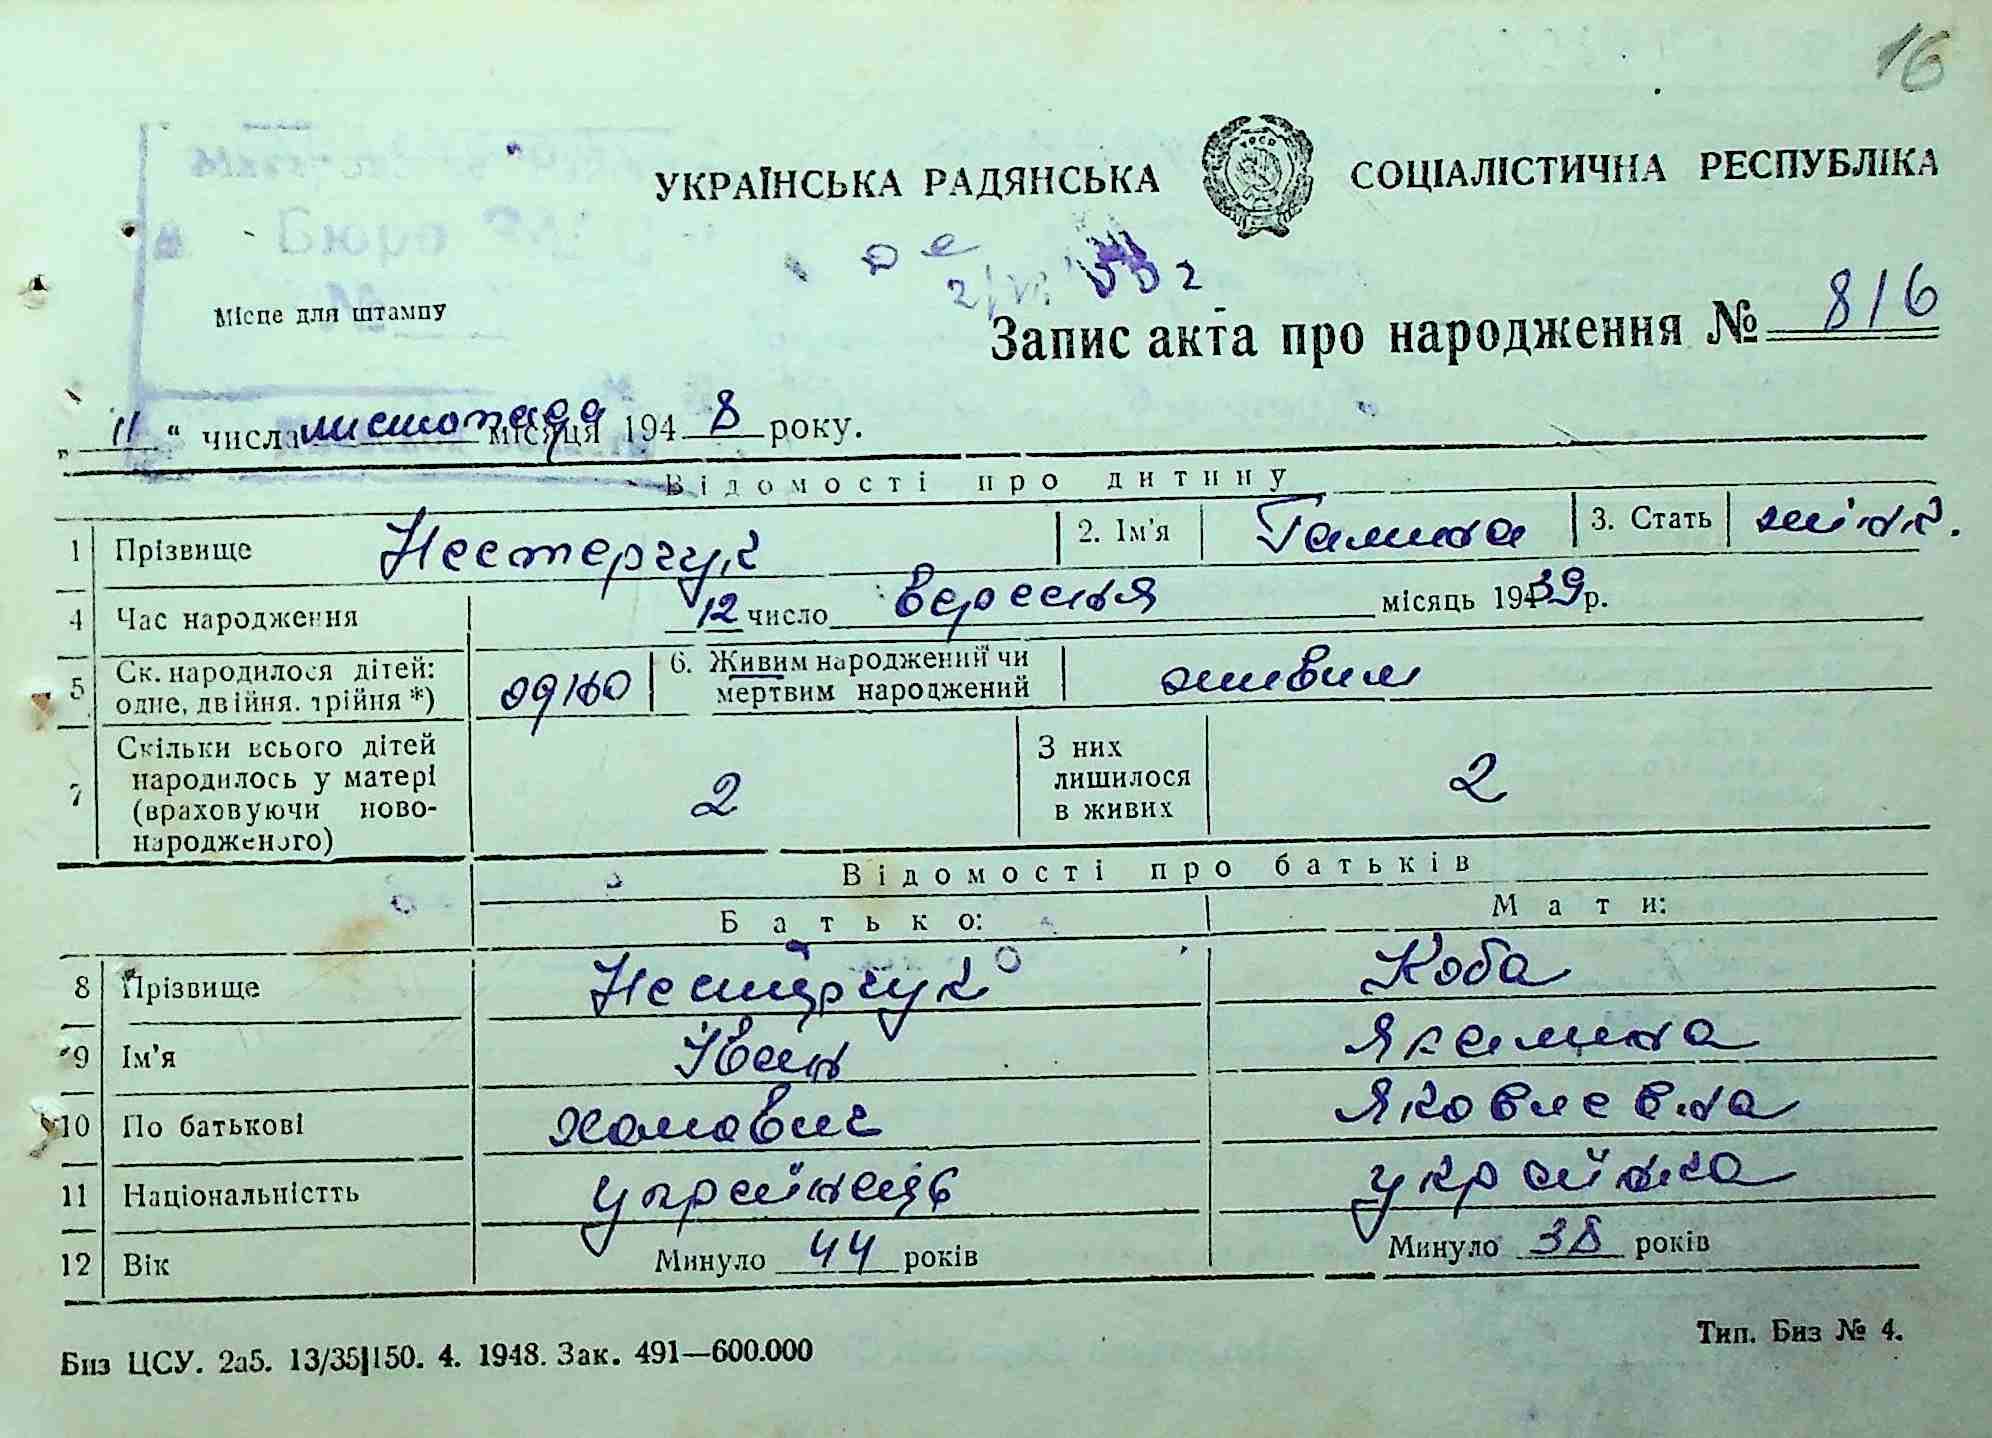 16
УКРАЇНСЬКА РАДЯНСЬКА СОЦІАЛІСТИЧНА РЕСПУБЛІКА
Бюро
Місце для штампу
Запис акта про народження № 816
„ 11 “ числа листопада місяця 1948 року.
Відомості про дитину
1 Прізвище Нестерчук 2. Ім'я Галина 3. Стать жіноч.
4 Час народження 12 число вересня місяць 1939 р.
5 Ск. народилося дітей: одне, двійня, трійня *) одно 6. Живим народжений чи мертвим народжений живим
7 Скільки всього дітей народилось у матері (враховуючи новонародженого) 2 З них лишилося в живих 2
Відомості про батьків
Батько: Мати:
8 Прізвище Нестерчук Коба
9 Ім'я Іван Якимина
10 По батькові Хомович Яковлевна
11 Національністть українець українка
12 Вік Минуло 44 років Минуло 38 років
Биз ЦСУ. 2а5. 13/35|150. 4. 1948. Зак. 491—600.000
Тип. Биз № 4.